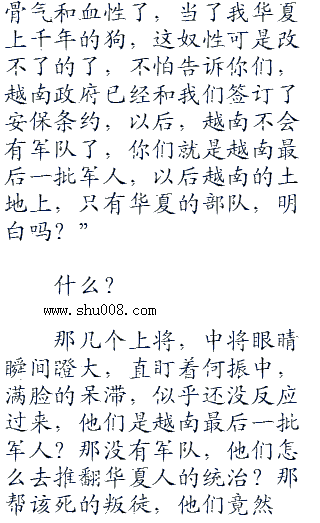 骨气和血性了，当了我华夏
上千年的狗，这奴性可是改
不了的了，不怕告诉你们，
越南政府已经和我们签订了
安保条约，以后，越南不会
有军队了，你们就是越南最
后一批军人，以后越南的土
地上，只有华夏的部队，明
白吗？”
什么？
www.shu008.com
那几个上将，中将眼睛
瞬间瞪大，直盯着何振中，
满脸的呆滞，似乎还没反应
过来，他们是越南最后一批
军人？那没有军队，他们怎
么去推翻华夏人的统治？那
帮该死的叛徒，他们竟然